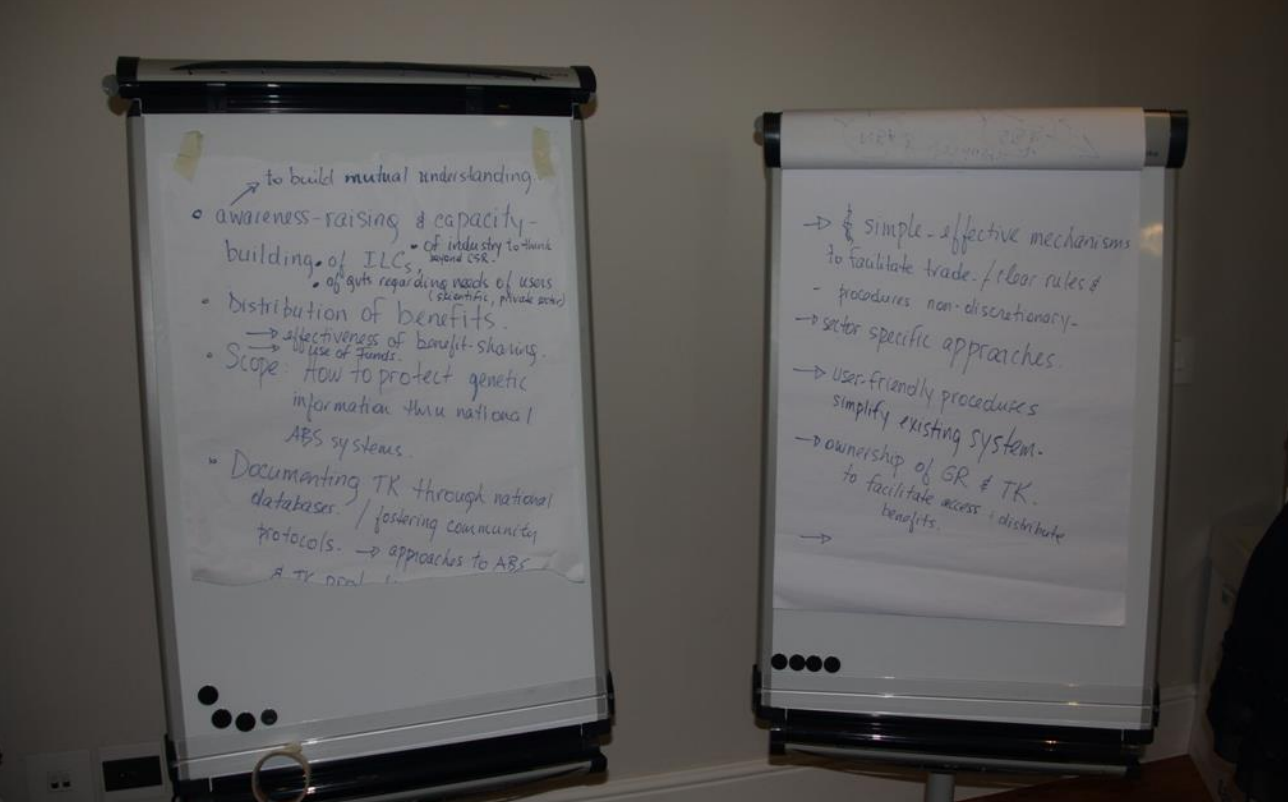 to build mutual understanding.
• awareness-raising & capacity-
building • of ILCs, • of industry to think
beyond CSR.
• of gvts regarding needs of users
(scientific, private sector)
• Distribution of benefits.
→ effectiveness of benefit-sharing.
→ use of Funds.
• Scope: How to protect genetic
information thru national
ABS systems.
• Documenting TK through national
databases. / fostering community
protocols. → approaches to ABS
& TK
→ simple-effective mechanisms
to facilitate trade. / clear rules &
- procedures non-discretionary-
→ sector specific approaches.
→ user-friendly procedures
simplify existing system.
→ ownership of GR & TK.
to facilitate access distribute
benefits.
→